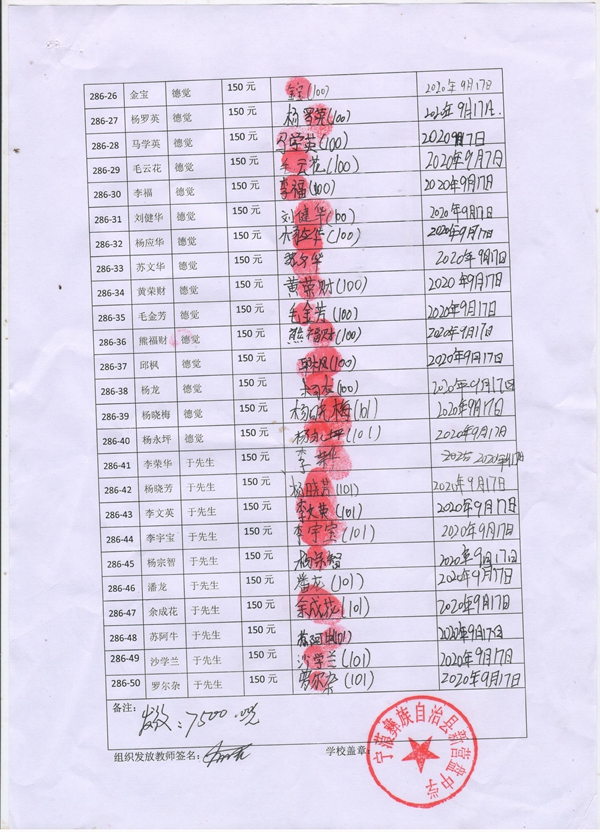 286-26 金宝 德觉 150 元 金宝(100) 2020年9月17日
286-27 杨罗英 德觉 150 元 杨罗英(100) 2020年9月17日.
286-28 马学英 德觉 150 元 马学英(100) 2020年9月17日
286-29 毛云花 德觉 150 元 毛云花(100) 2020年9月17日
286-30 李福 德觉 150 元 李福(100) 2020年9月17日
286-31 刘健华 德觉 150 元 刘健华(100) 2020年9月17日
286-32 杨应华 德觉 150 元 杨应华(100) 2020年9月17日
286-33 苏文华 德觉 150 元 苏文华 2020年9月17日
286-34 黄荣财 德觉 150 元 黄荣财(100) 2020年9月17日
286-35 毛金芳 德觉 150 元 毛金芳(100) 2020年9月17日
286-36 熊福财 德觉 150 元 熊福财(100) 2020年9月17日
286-37 邱枫 德觉 150 元 邱枫(100) 2020年9月17日
286-38 杨龙 德觉 150 元 (100) 2020年9月17日
286-39 杨晓梅 德觉 150 元 杨晓梅(101) 2020年9月17日
286-40 杨永坪 德觉 150 元 杨永坪(101) 2020年9月17日
286-41 李荣华 于先生 150 元 李荣华 2020年9月17日
286-42 杨晓芳 于先生 150 元 杨晓芳(101) 2020年9月17日
286-43 李文英 于先生 150 元 李文英(101) 2020年9月17日
286-44 李宇宝 于先生 150 元 李宇宝(101) 2020年9月17日
286-45 杨宗智 于先生 150 元 杨宗智 2020年9月17日
286-46 潘龙 于先生 150 元 潘龙(101) 2020年9月17日
286-47 余成花 于先生 150 元 余成花(101) 2020年9月17日
286-48 苏阿牛 于先生 150 元 苏阿牛(101) 2020年9月17日
286-49 沙学兰 于先生 150 元 沙学兰(101) 2020年9月17日
286-50 罗尔杂 于先生 150 元 罗尔杂(101) 2020年9月17日
备注:
发放:7500.元
组织发放教师签名: 学校盖章:
宁蒗彝族自治县新营盘中学